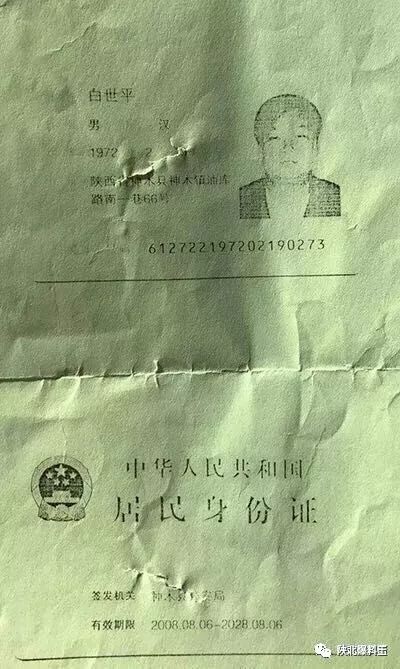 白世平
男 汉
1972 2
陕西省神木县神木镇油库
路南一巷66号
612722197202190273
中华人民共和国
居民身份证
签发机关 神木县公安局
有效期限 2008.08.06-2028.08.06
陕北爆料王